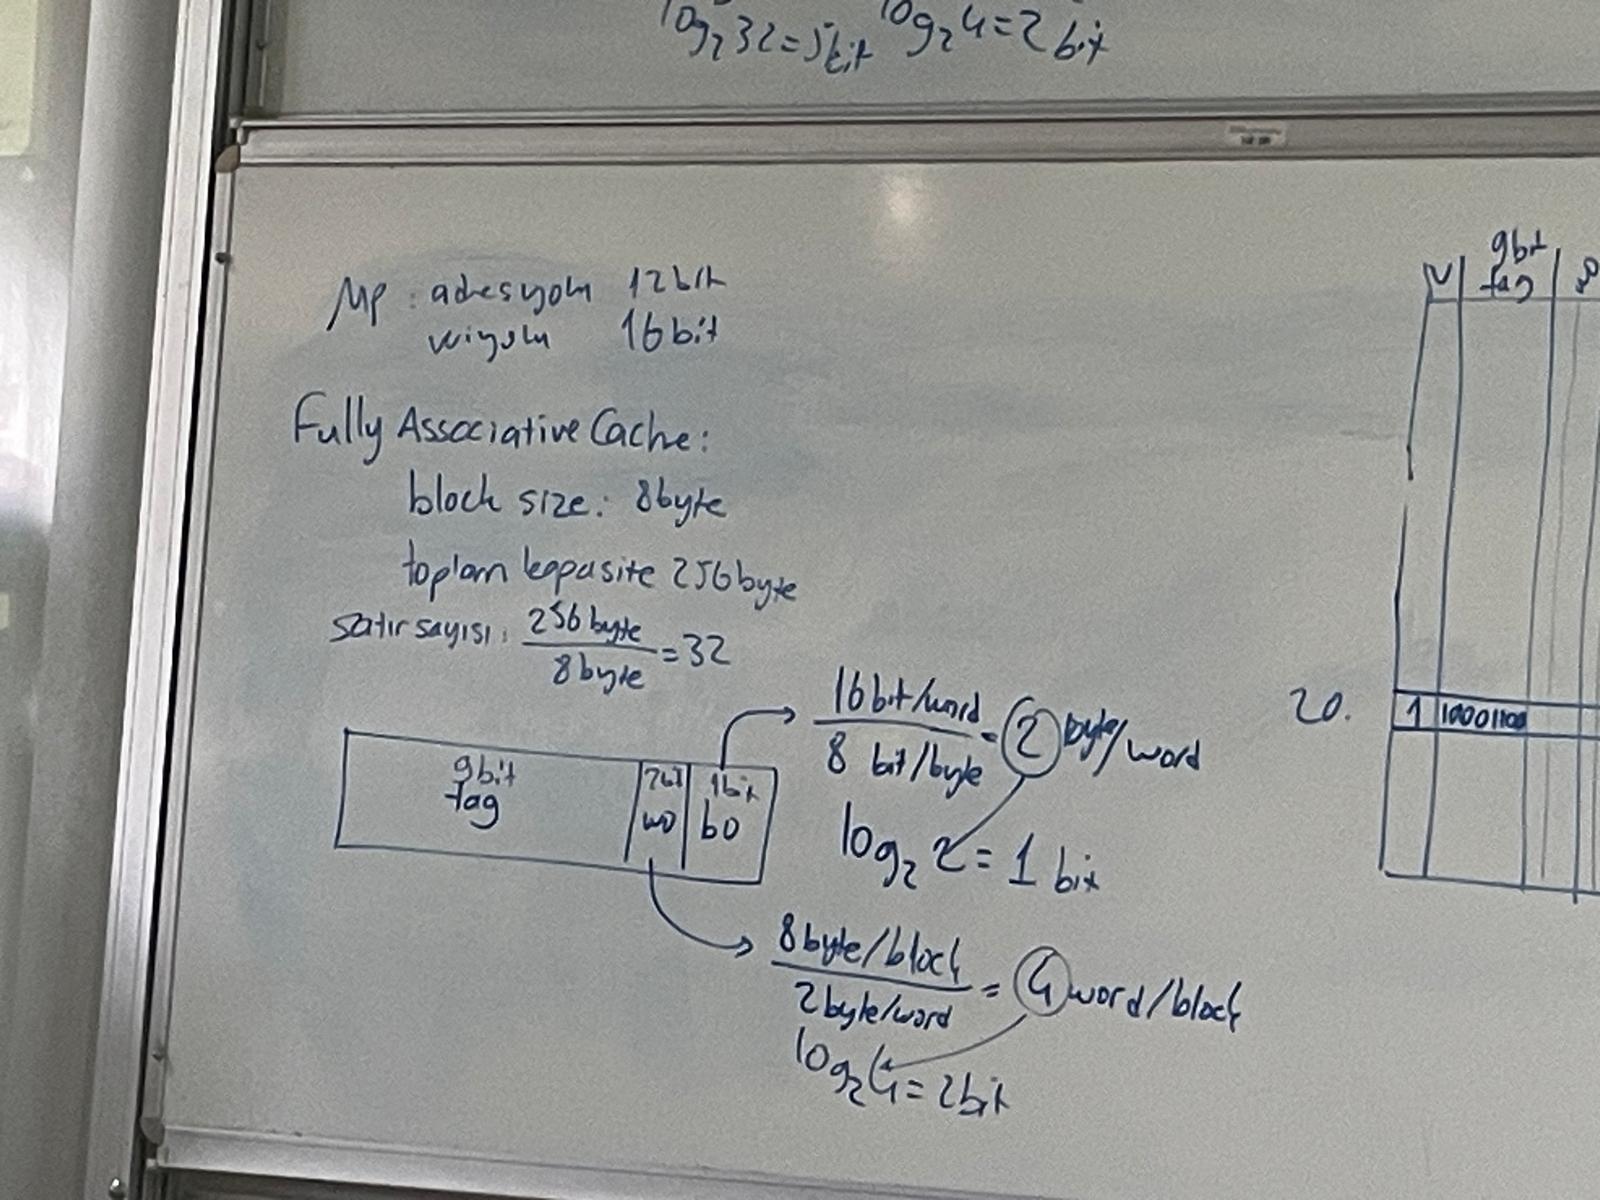 log₂32=5bit log₂4=2bit
μp: adresyolu 12bit
veriyolu 16bit
Fully Associative Cache:
block size: 8byte
toplam kapasite 256byte
satır sayısı: 256 byte / 8 byte = 32
9bit tag
2bit wo
1bit bo
16bit/word / 8 bit/byte = 2 byte/word
log₂ 2 = 1 bit
8byte/block / 2byte/word = 4 word/block
log₂4=2bit
V
9bit tag
20. 1